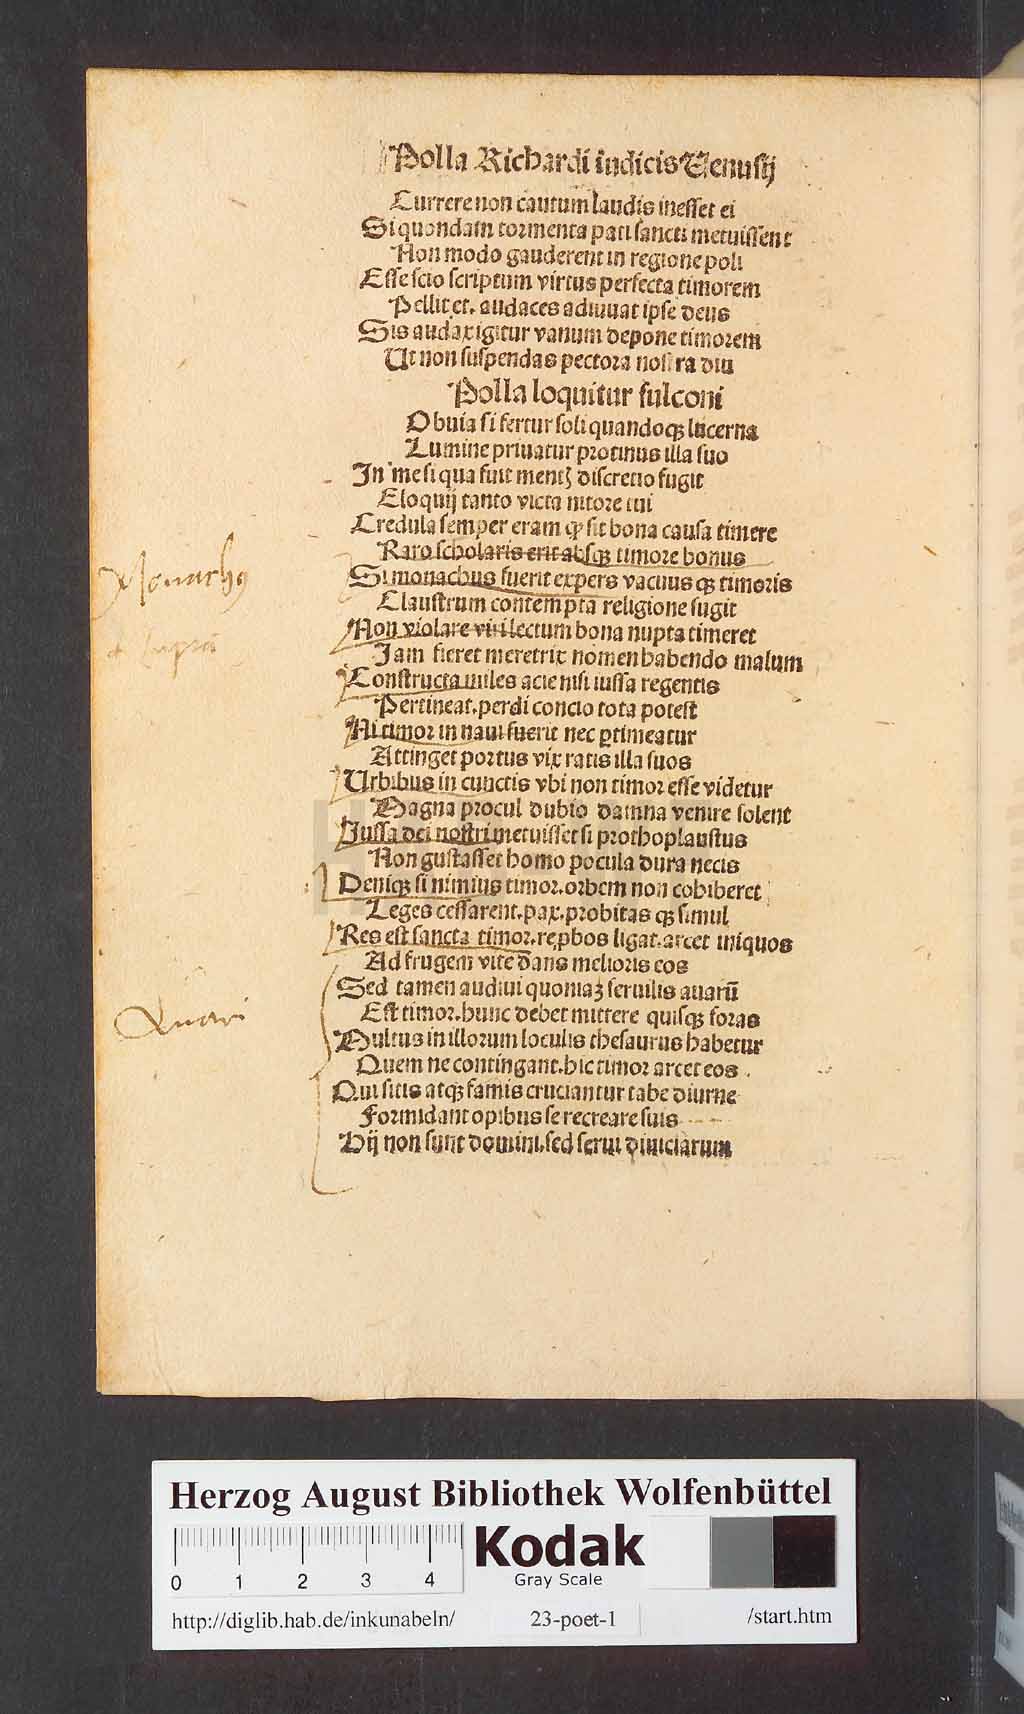 Polla Richardi iudicis Uenusij
Currere non cautum laudis inesset ei
Si quondam tormenta pati sancti metuissent
Non modo gauderent in regione poli
Esse scio scriptum virtus perfecta timorem
Pellit et. audaces adiuuat ipse deus
Sis audax igitur vanum depone timorem
Ut non suspendas pectora nostra diu
Polla loquitur fulconi
Obuia si fertur soli quandoqꝫ lucerna
Lumine priuatur protinus illa suo
In me si qua fuit mentꝭ discretio fugit
Eloquij tanto victa nitore tui
Credula semper eram ꝙ sit bona causa timere
Raro scholaris erit absqꝫ timore bonus
Si monachus fuerit expers vacuus qꝫ timoris
Claustrum contempta religione fugit
Monachus
Non violare viri lectum bona nupta timeret
Jam fieret meretrix nomen habendo malum
Constructa miles acie nisi iussa regentis
Pertineat. perdi concio tota potest
Ni timor in naui fuerit nec ꝑtimeatur
Attinget portus vix ratis illa suos
Urbibus in cunctis vbi non timor esse videtur
Magna procul dubio damna venire solent
Jussa dei nostri metuisset si prothoplaustus
Non gustasset homo pocula dura necis
Deniqꝫ si nimius timor. orbem non cohiberet
Leges cessarent. pax. probitas qꝫ simul
Res est sancta timor. reꝓbos ligat. arcet iniquos
Ad frugem vite dans melioris eos
Sed tamen audiui quoniaꝫ seruilis auarū
Est timor. hunc debet mittere quisqꝫ foras
Auari
Multus in illorum loculis thesaurus habetur
Quem ne contingant. hic timor arcet eos .
Qui sitis atqꝫ famis cruciantur tabe diurne
Formidant opibus se recreare suis
Hij non sunt domini. sed serui diuiciarum
Herzog August Bibliothek Wolfenbüttel
0 1 2 3 4
Kodak
Gray Scale
http://diglib.hab.de/inkunabeln/ 23-poet-1 /start.htm